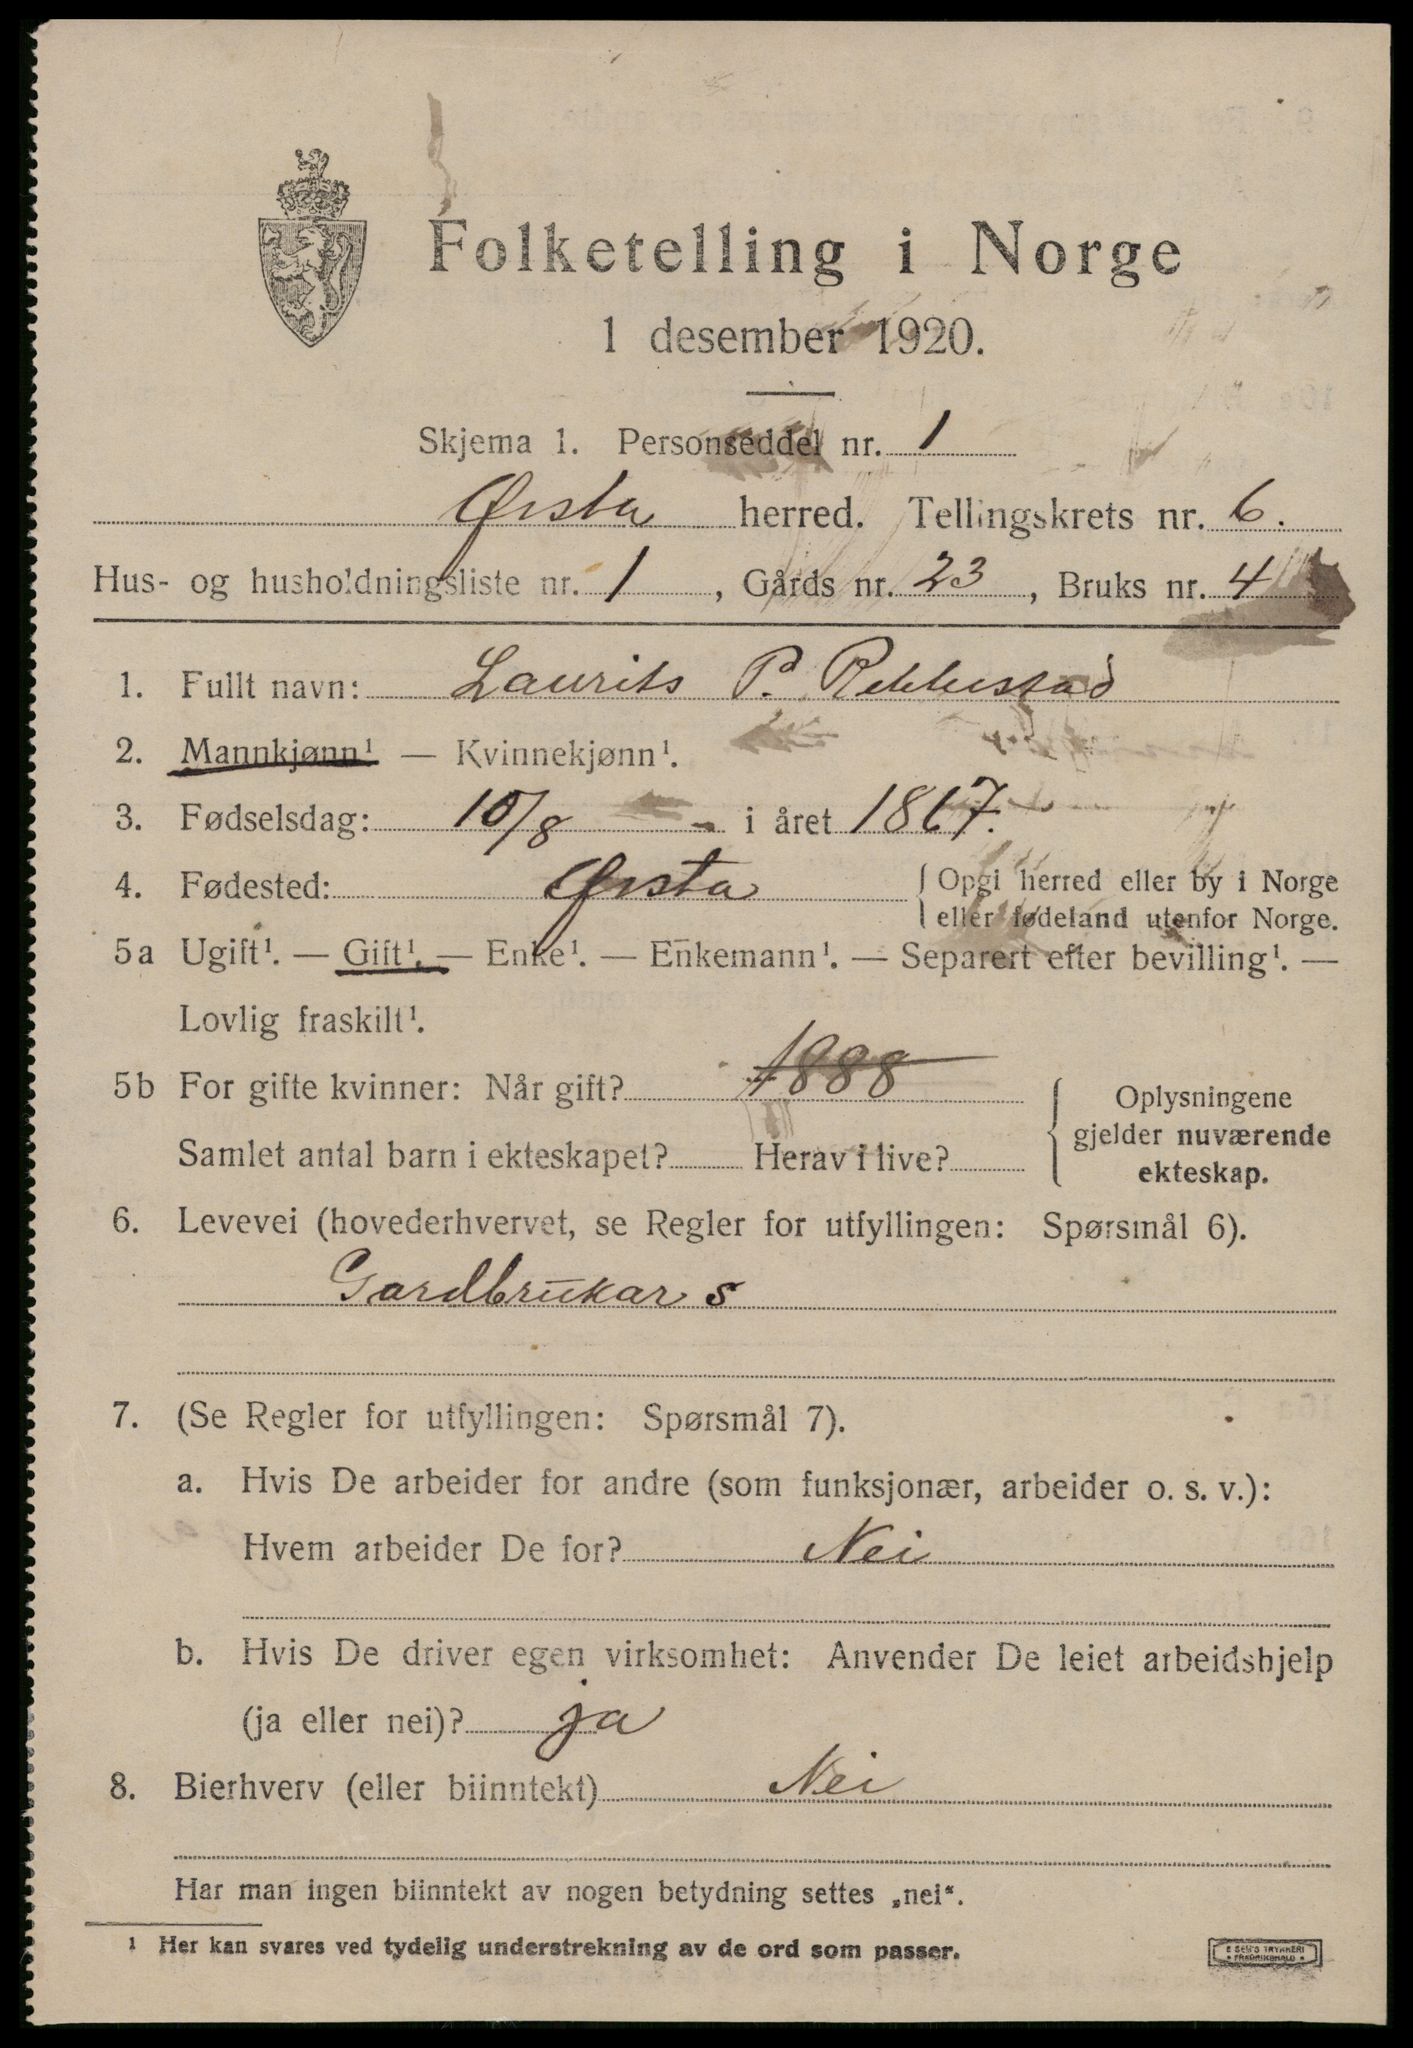 Folketelling i Norge
1 desember 1920.
Skjema 1. Personseddel nr. 1
Ørsta herred. Tellingskrets nr. 6.
Hus- og husholdningsliste nr. 1, Gårds nr. 23, Bruks nr. 4
1. Fullt navn: Laurits P. Rekkestad
2. Mannkjønn¹ — Kvinnekjønn¹.
3. Fødselsdag: 10/8 i året 1867.
4. Fødested: Ørsta {Opgi herred eller by i Norge
eller fødeland utenfor Norge.
5a Ugift¹. — Gift¹. — Enke¹. — Enkemann¹. — Separert efter bevilling¹. —
Lovlig fraskilt¹.
5b For gifte kvinner: Når gift? 1888
Samlet antal barn i ekteskapet? Herav i live?
{Oplysningene
gjelder nuværende
ekteskap.
6. Levevei (hovederhvervet, se Regler for utfyllingen: Spørsmål 6).
Gardbrukar s
7. (Se Regler for utfyllingen: Spørsmål 7).
a. Hvis De arbeider for andre (som funksjonær, arbeider o. s. v.):
Hvem arbeider De for? Nei
b. Hvis De driver egen virksomhet: Anvender De leiet arbeidshjelp
(ja eller nei)? ja
8. Bierhverv (eller biinntekt) Nei
Har man ingen biinntekt av nogen betydning settes „nei“.
¹ Her kan svares ved tydelig understrekning av de ord som passer.
TRYKKERI
FREDRIKSHALD